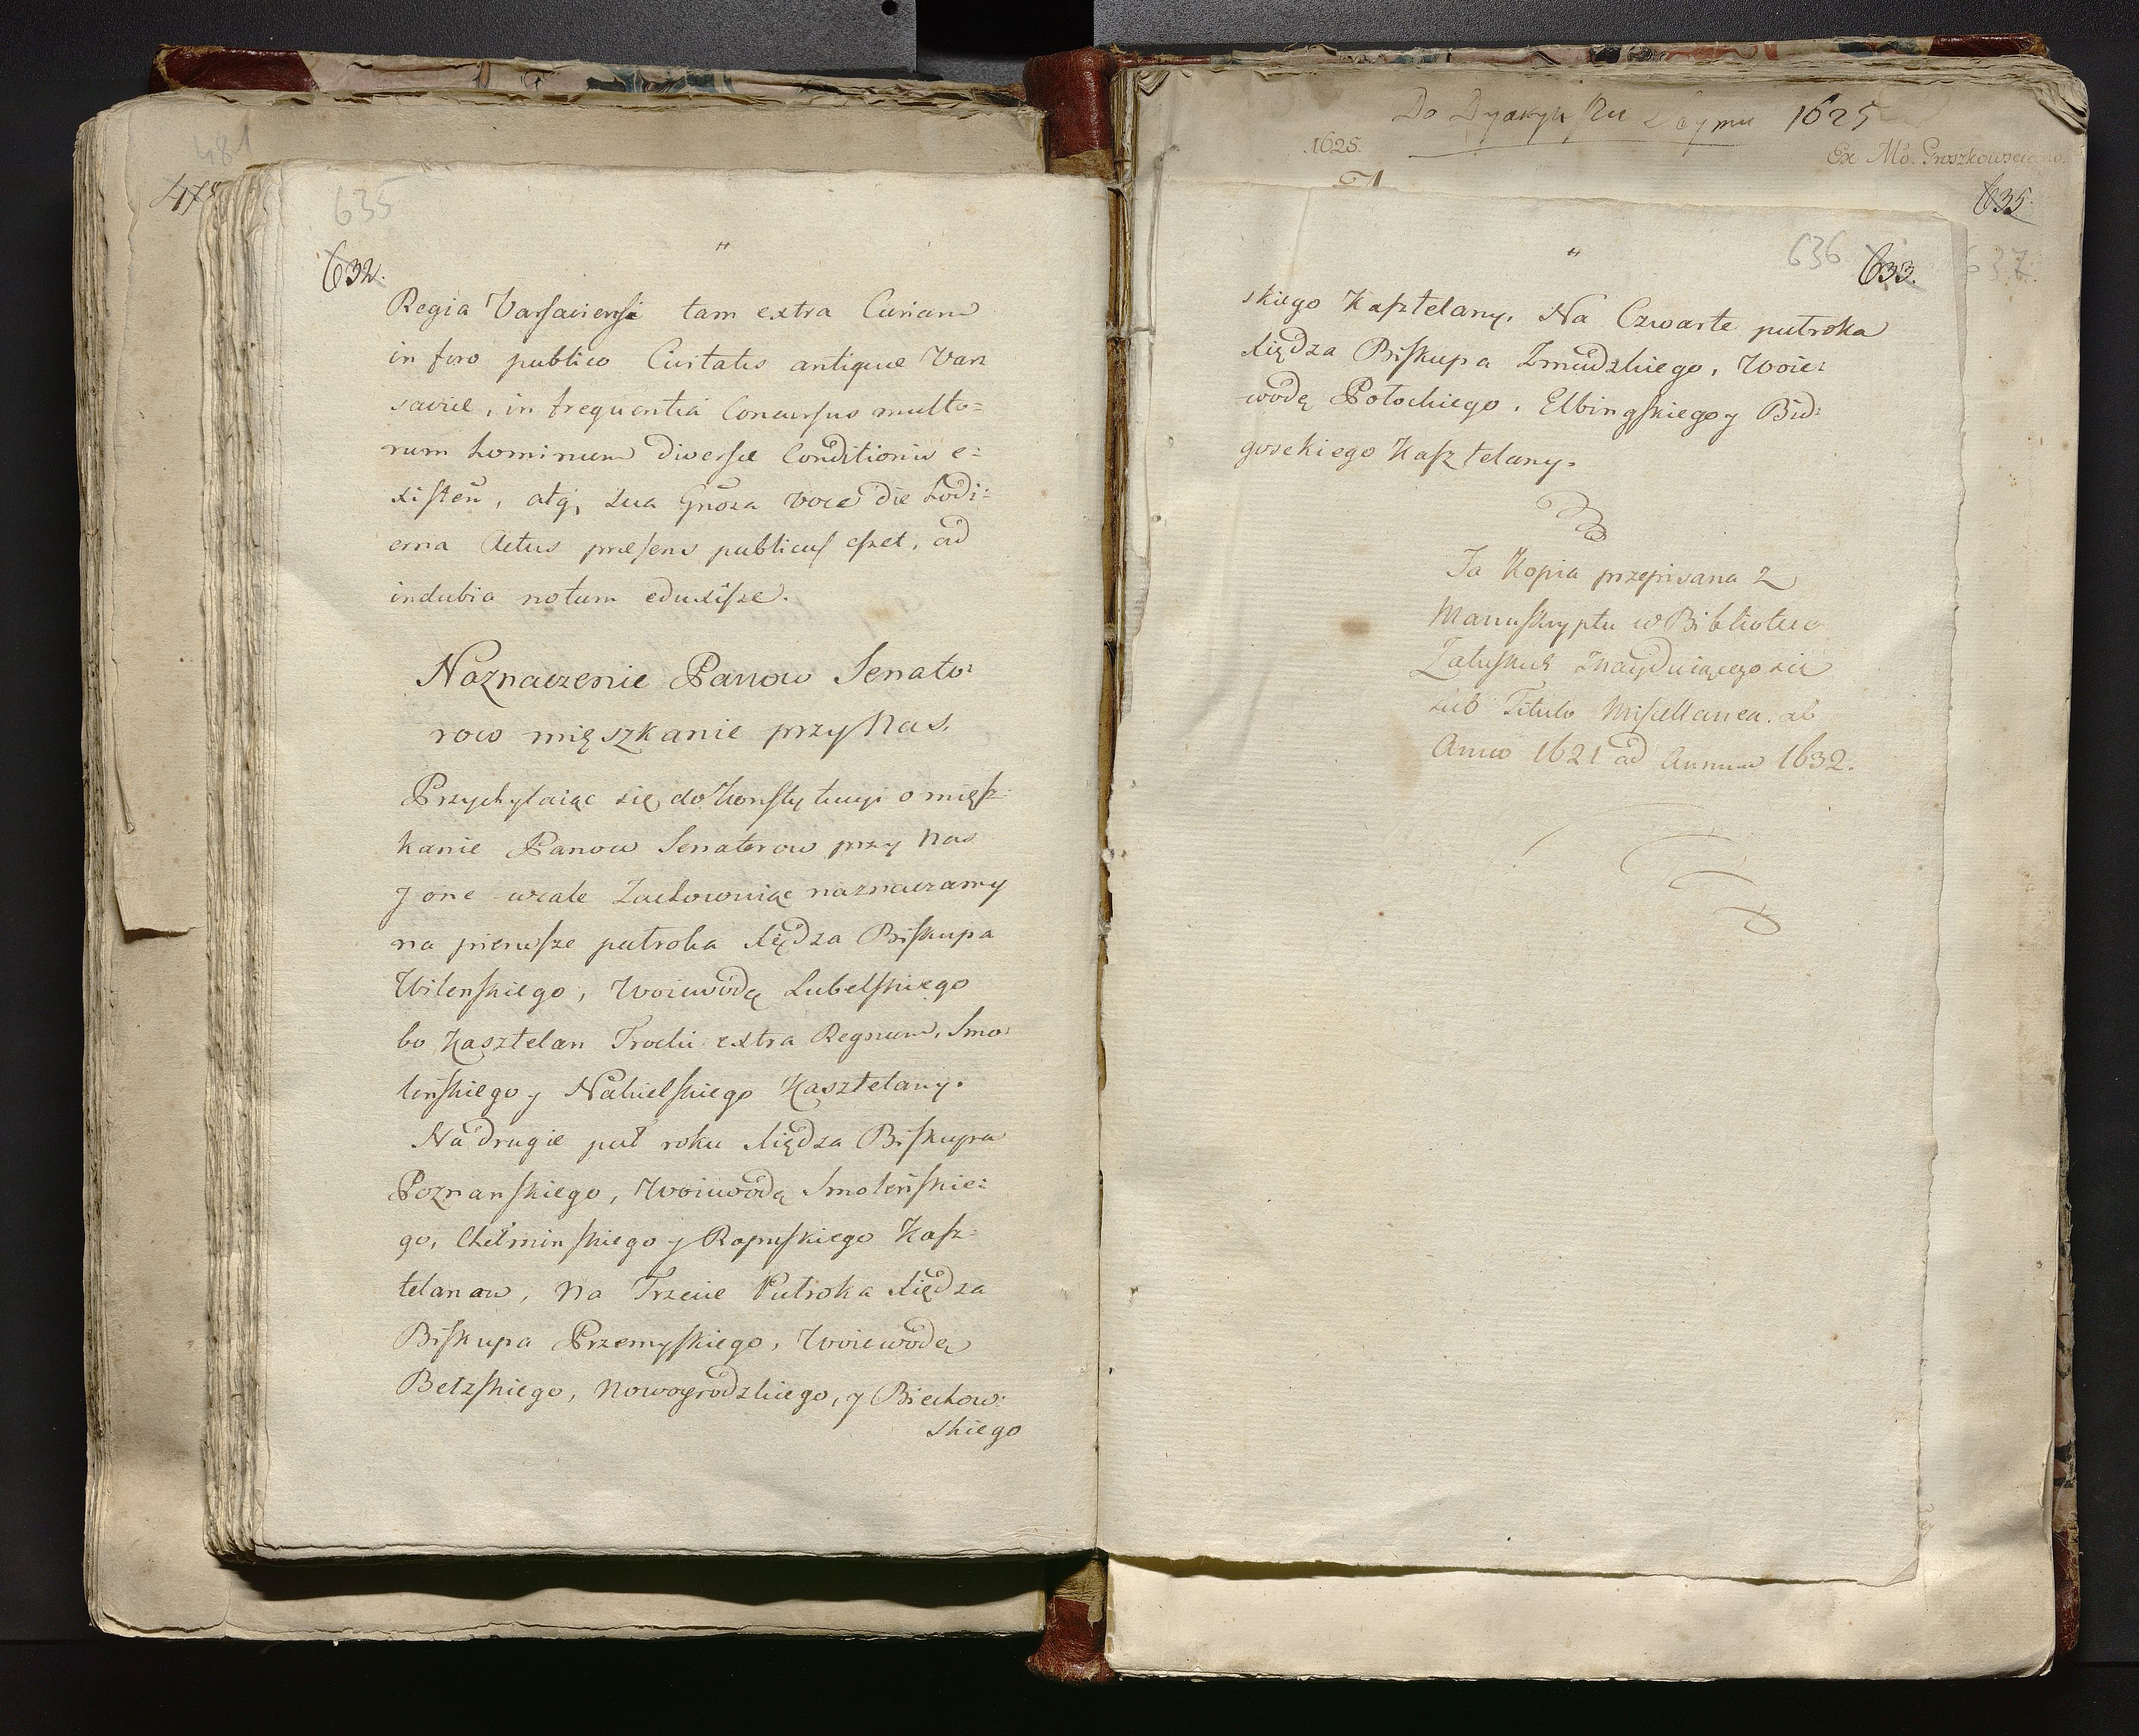 481
635
632.
Regia Varsaviensi tam extra Curiam
in foro publico Civitatis antiquæ Var=
saviæ, in frequentiá Concursus multo=
rum hominum diversæ Conditionis e=
xisteñ, atq;, sua Gñosa voce die hodi=
erna Actus præsens publicus eszet, ad
indubia notum eduxisze.
Naznaczenie Panow Senato=
row mięszkanie przy Nas.
Przychylaiąc się do Konstytucyi o mięsz=
kanie Panow Senatorow przy Nas
y one wcale Zachowuiąc naznaczamy
na pierwsze pułroka Xiędza Biskupa
Wilenskiego, Woiewodę Lubelskiego
bo Kasztelan Trocki extra Regnum, Smo=
leńskiego y Nakielskiego Kasztelany.
Na drugie puł roku Xiędza Biskupa
Poznanskiego, Woiewodę Smoleńskie=
go, Chełminskiego y Rospskiego Kasz=
telanow, Na Trzecie Pułroka Xiędza
Biskupa Przemyskiego, Woiewodę
Bełzskiego, Nowogrodzkiego, y Biechow=
skiego
Do Dyaryuszu Seymu 1625
1625.
Ex Mo. Groszkowsciano.
635.
637.
636
633.
skiego Kasztelany. Na Czwarte pułroka
Xiędza Biskupa Zmudzkiego, Woie=
wodę Połockiego, Elbingskiego y Bid=
goskiego Kasztelany.
Ta Kopia przepisana z
Manuskryptu w Bibliotece
Załuskich znayduiącego się
sub Titulo Miscellanea. ab
Anno 1621 ad Annum 1632.